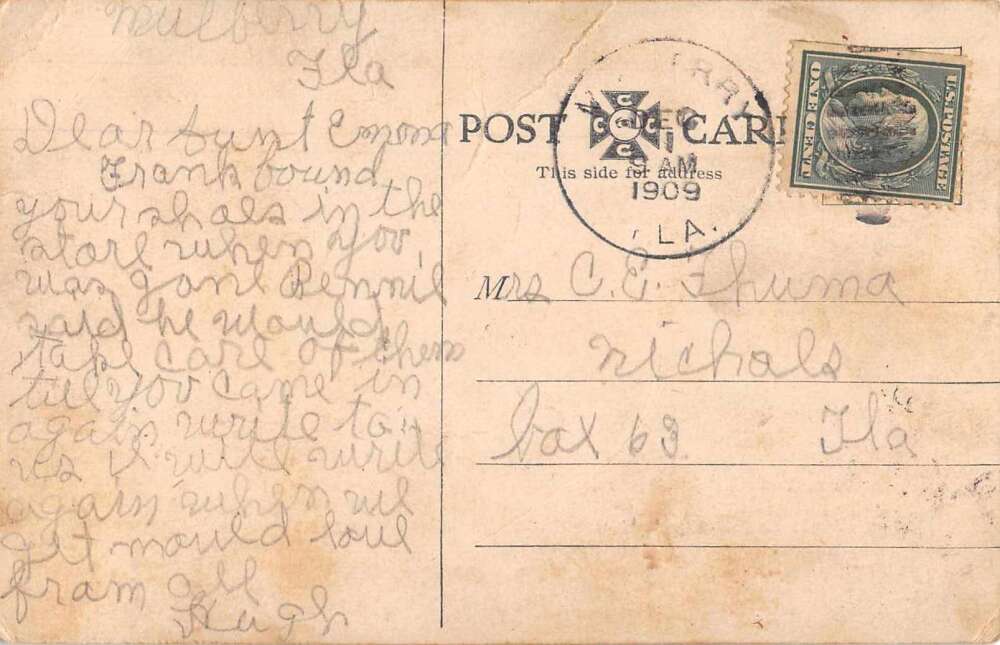 Mulberry
Fla
Dear Aunt Emma
Frank bound
your shoes in the
store when you
was gone Bennie
said he would
take care of them
till you came in
again write to
us I will write
again when we
get mould love
from all
Hugh
POST CARD
This side for address
DEC
11
9 AM
1909
FLA.
U.S. POSTAGE
ONE CENT
Mrs C. E. Thuma
Nichals
box 63 Fla